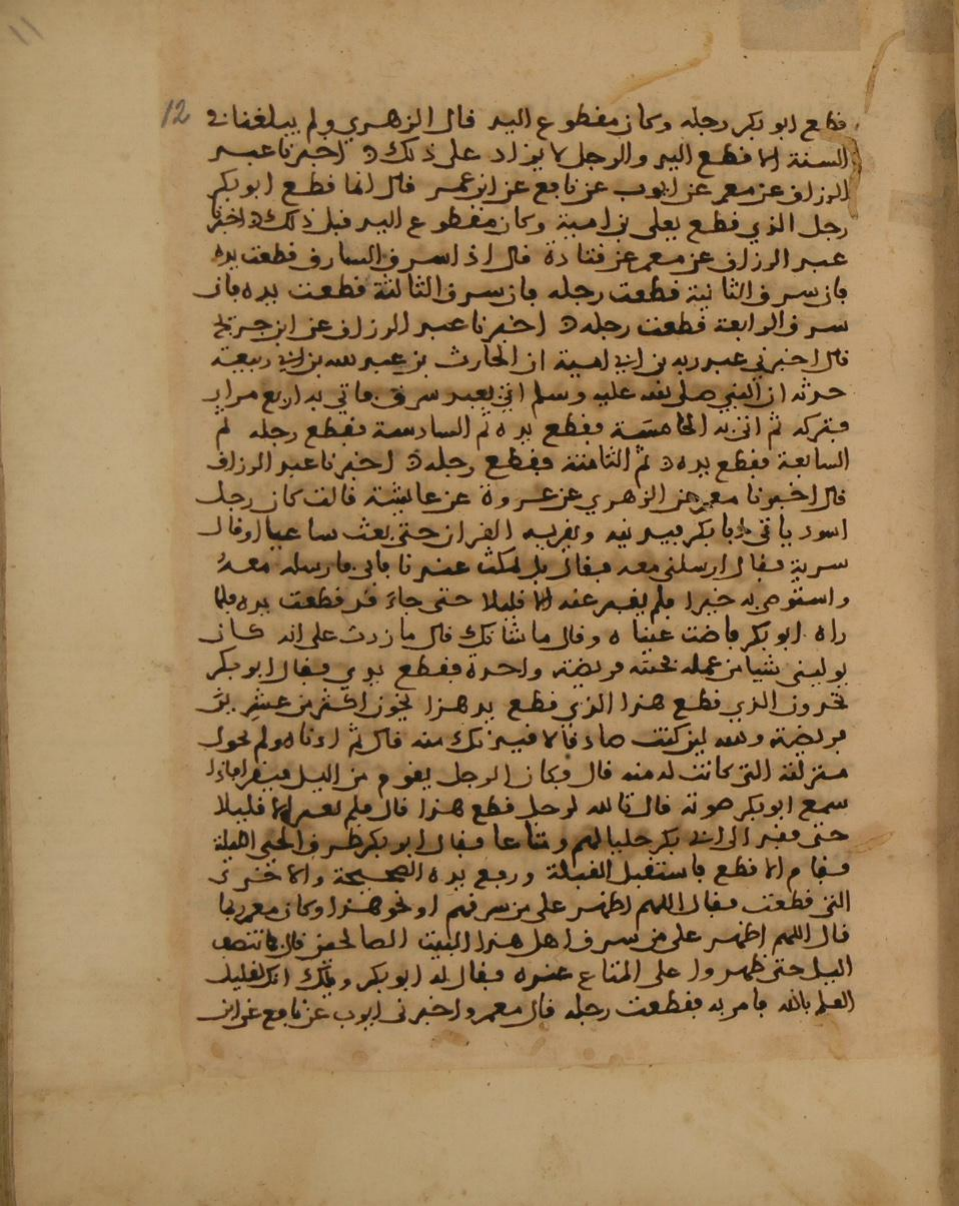 12
قطع ابو بكر رجله وكان مقطوع اليد قال الزهري ولم يبلغنا في
السنة الا قطع اليد والرجل لا يزاد على ذلك اخبرنا عبد
الرزاق عن معمر عن ايوب عن نافع عن ابن عمر قال انما قطع ابو بكر
رجل الذي قطع يعلى بن امية وكان مقطوع اليد قبل ذلك اخبرنا
عبد الرزاق عن معمر عن قتادة قال اذا سرق السارق قطعت يده
فان سرق الثانية قطعت رجله فان سرق الثالثة قطعت يده فان
سرق الرابعة قطعت رجله اخبرنا عبد الرزاق عن ابن جريج
قال اخبرني عبد ربه بن ابي امية ان الحارث بن عبد الله بن ابي ربيعة
حدثه ان النبي صلى الله عليه وسلم اتي بعبد سرق فاتي به اربع مرار
فتركه ثم اتي به الخامسة فقطع يده ثم السادسة فقطع رجله ثم
السابعة فقطع يده ثم الثامنة فقطع رجله اخبرنا عبد الرزاق
قال اخبرنا معمر عن الزهري عن عروة عن عايشة قالت كان رجل
اسود ياتي ابا بكر فيدنيه ويقريه القران حتى بعث ساعيا او قال
سرية فقال ارسلني معه فقال بل تمكث عندنا فابى فارسله معه
واستوصى به خيرا فلم يغبر عنه الا قليلا حتى جاء قد قطعت يده فلما
راه ابو بكر فاضت عيناه وقال ما شانك قال ما زدت على انه كان
يوليني شيا من عمله فخنته فريضة واحدة فقطع يدي فقال ابو بكر
تجدون الذي قطع هذا الذي قطع يد هذا يخون اكثر من عشرين
فريضة والله لين كنت صادقا لاقيدنك منه قال ثم ادناه ولم تحول
منزلته التي كانت له منه قال فكان الرجل يقوم من الليل فيقرا فاذا
سمع ابو بكر صوته قال تالله لرجل قطع هذا قال فلم يغبر الا قليلا
حتى فقد ال ابي بكر حليا لهم ومتاعا فقال ابو بكر طرق الحي الليلة
فقام الاقطع فاستقبل القبلة ورفع يده الصحيحة والاخرى
التي قطعت فقال اللهم اظهر على من سرقهم او نحو هذا وكان معمر ربما
قال اللهم اظهر على من سرق اهل هذا البيت الصالحين قال فما انتصف
الليل حتى ظهروا على المتاع عنده فقال له ابو بكر ويلك انك لقليل
العلم بالله فامر به فقطعت رجله قال معمر واخبرني ايوب عن نافع عن ابن